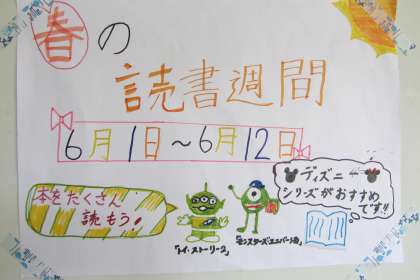 春の
読書週間
6月1日〜6月12日
本をたくさん
読もう!
ディズニー
シリーズがおすすめ
です!!
「トイ・ストーリー2」
「モンスターズ・ユニバーシティ」